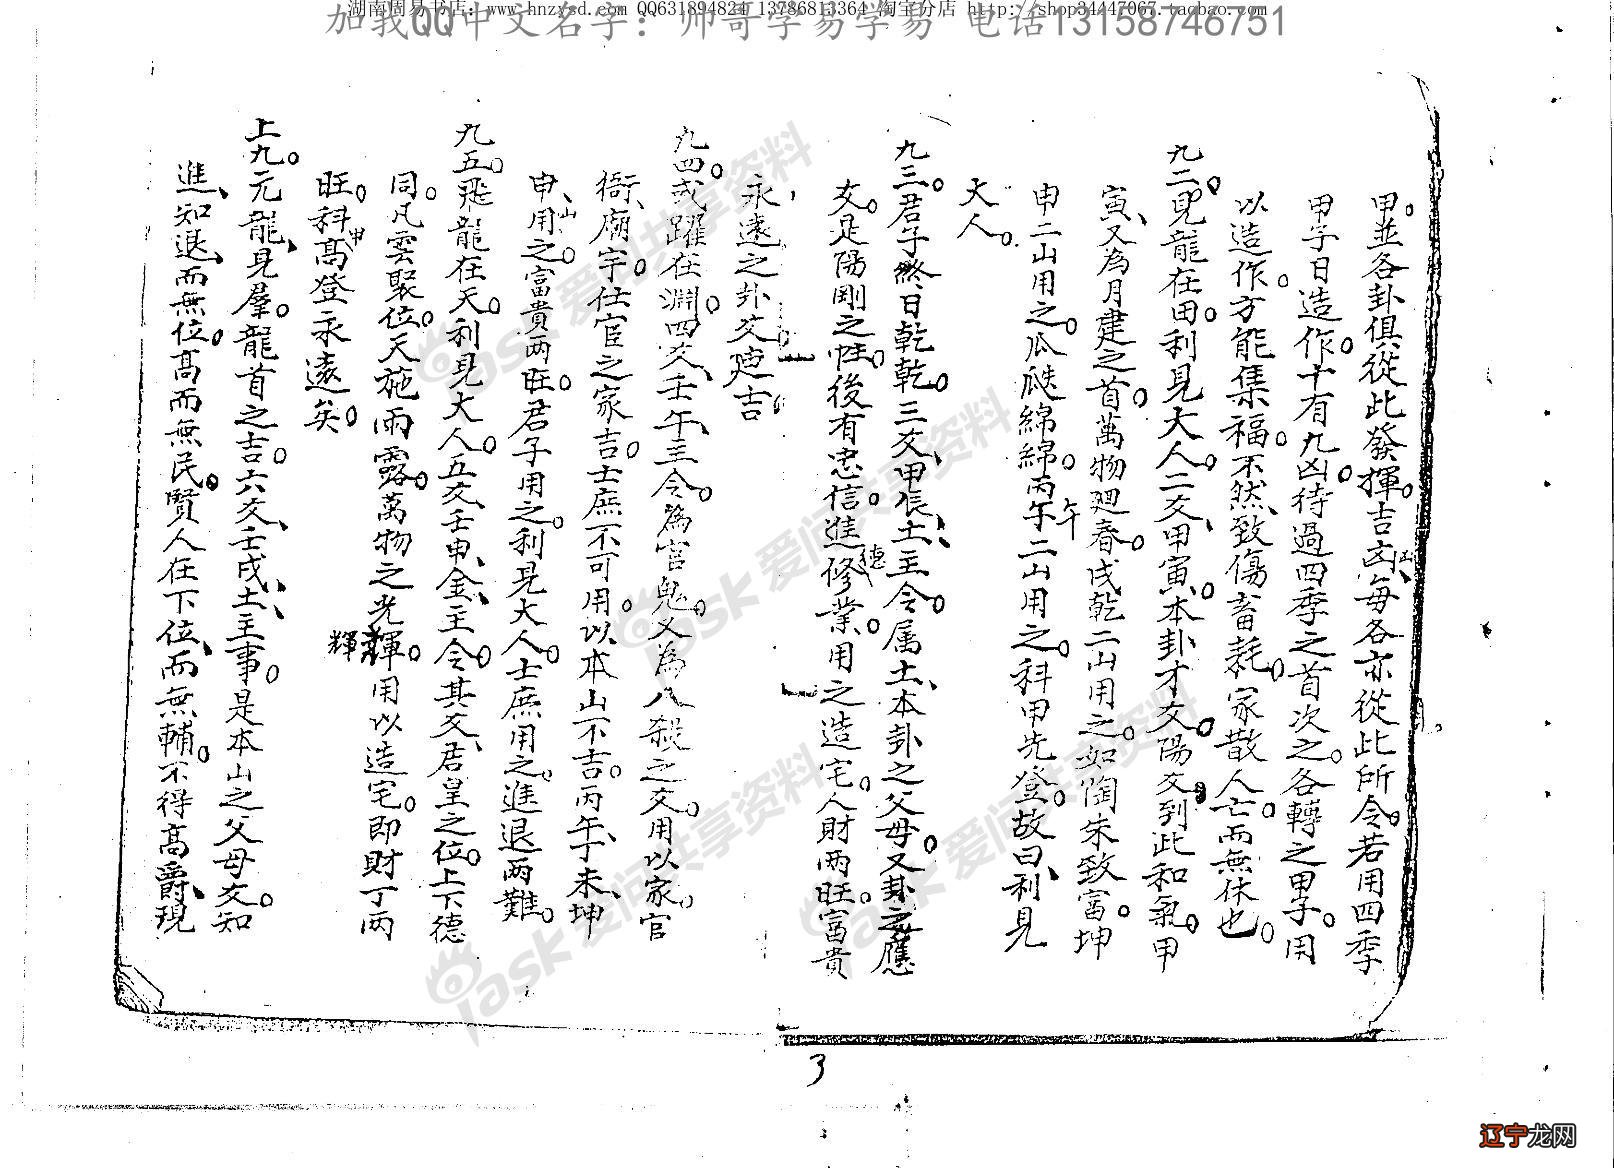 湖南周易书店：www.hnzysd.com QQ631894824 13786813364 淘宝分店 http://shop34447067.taobao.com
加我QQ中文名字：帅哥学易学易 电话13158746751
甲。並各卦俱從此發揮。吉凶每各亦從此所令。若用四季
甲子日造作。十有九凶。待過四季之首次之。各轉之甲子。用
以造作。方能集福。不然、致傷畜耗。家散人亡。而無休也。
九二。見龍在田。利見大人。二爻、甲寅、本卦才爻。陽爻到此和氣。甲
寅、又為月建之首。萬物迴春。戌乾二山用之。如陶朱致富。坤
申二山用之。瓜瓞綿綿。丙午二山用之。科甲先登。故曰、利見
午
大人。
九三。君子終日乾乾。三爻、甲辰、土主令。属土、本卦之父母。又卦之應
爻。是陽剛之性。後有忠信。進修業。用之造宅。人財两旺。富貴
德
永遠之卦爻迪吉。
九四。或躍在淵。四爻、壬午、主令。為官鬼。又為八殺之爻。用以家官
衙、廟宇。仕宦之家吉。士庶不可用。以本山不吉。丙午、丁未、坤
申、用之。富貴两旺。君子用之。利見大人。士庶用之。進退两難。
山
九五。飛龍在天。利見大人。五爻、壬申、金、主令。其爻、君皇之位。上下德
同。凡雲聚位。天施雨露。萬物之光輝。用以造宅。即財丁两
輝
旺。科高登永遠矣。
甲
上九。元龍、見羣。龍首之吉。六爻、壬戌、土、主事。是本山之父母爻。知
進、知退、而無位。高而無民。賢人在下位、而無輔。不得高爵、現
3
辽宁龙网